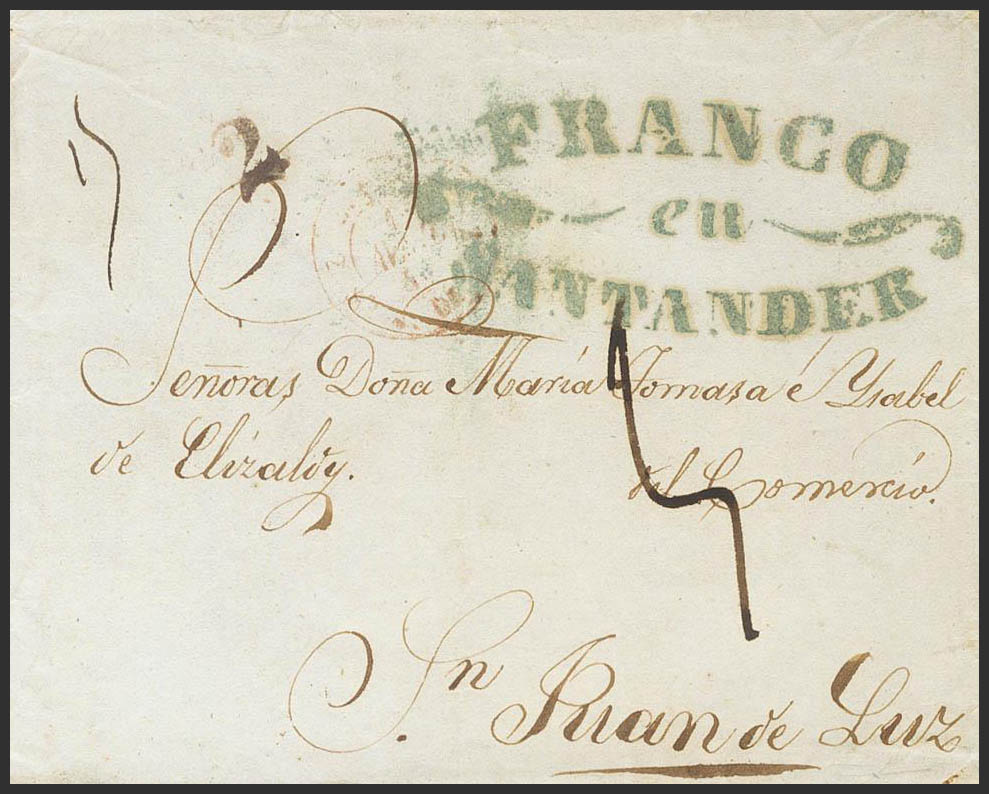 FRANCO
en
SANTANDER
Señoras Doña María Tomasa é Ysabel
de Elizaldy.
del Comercio.
Sn Juan de Luz